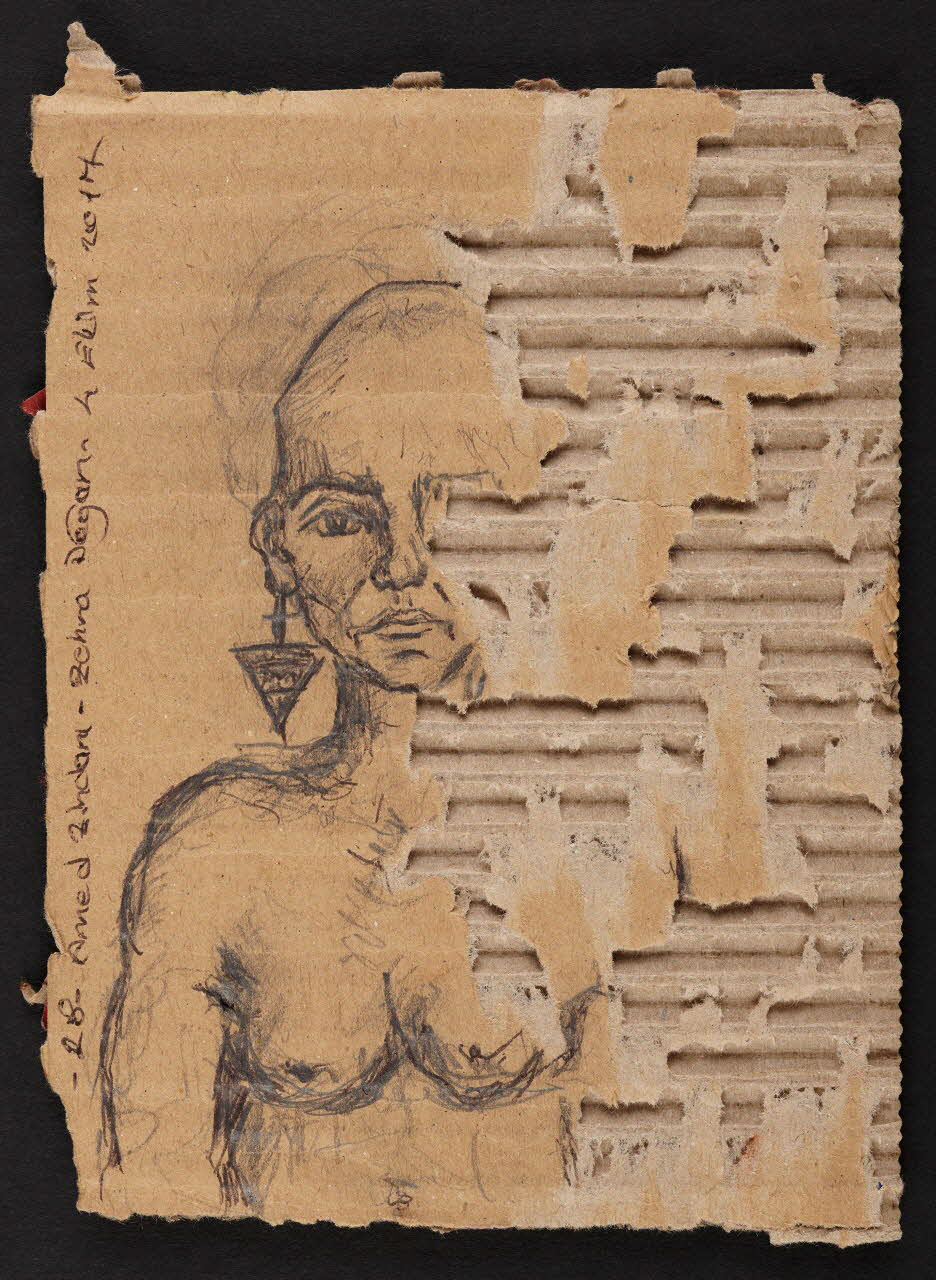 -28- Amed Zindanı - Zehra Doğan 4 Ekim 2017